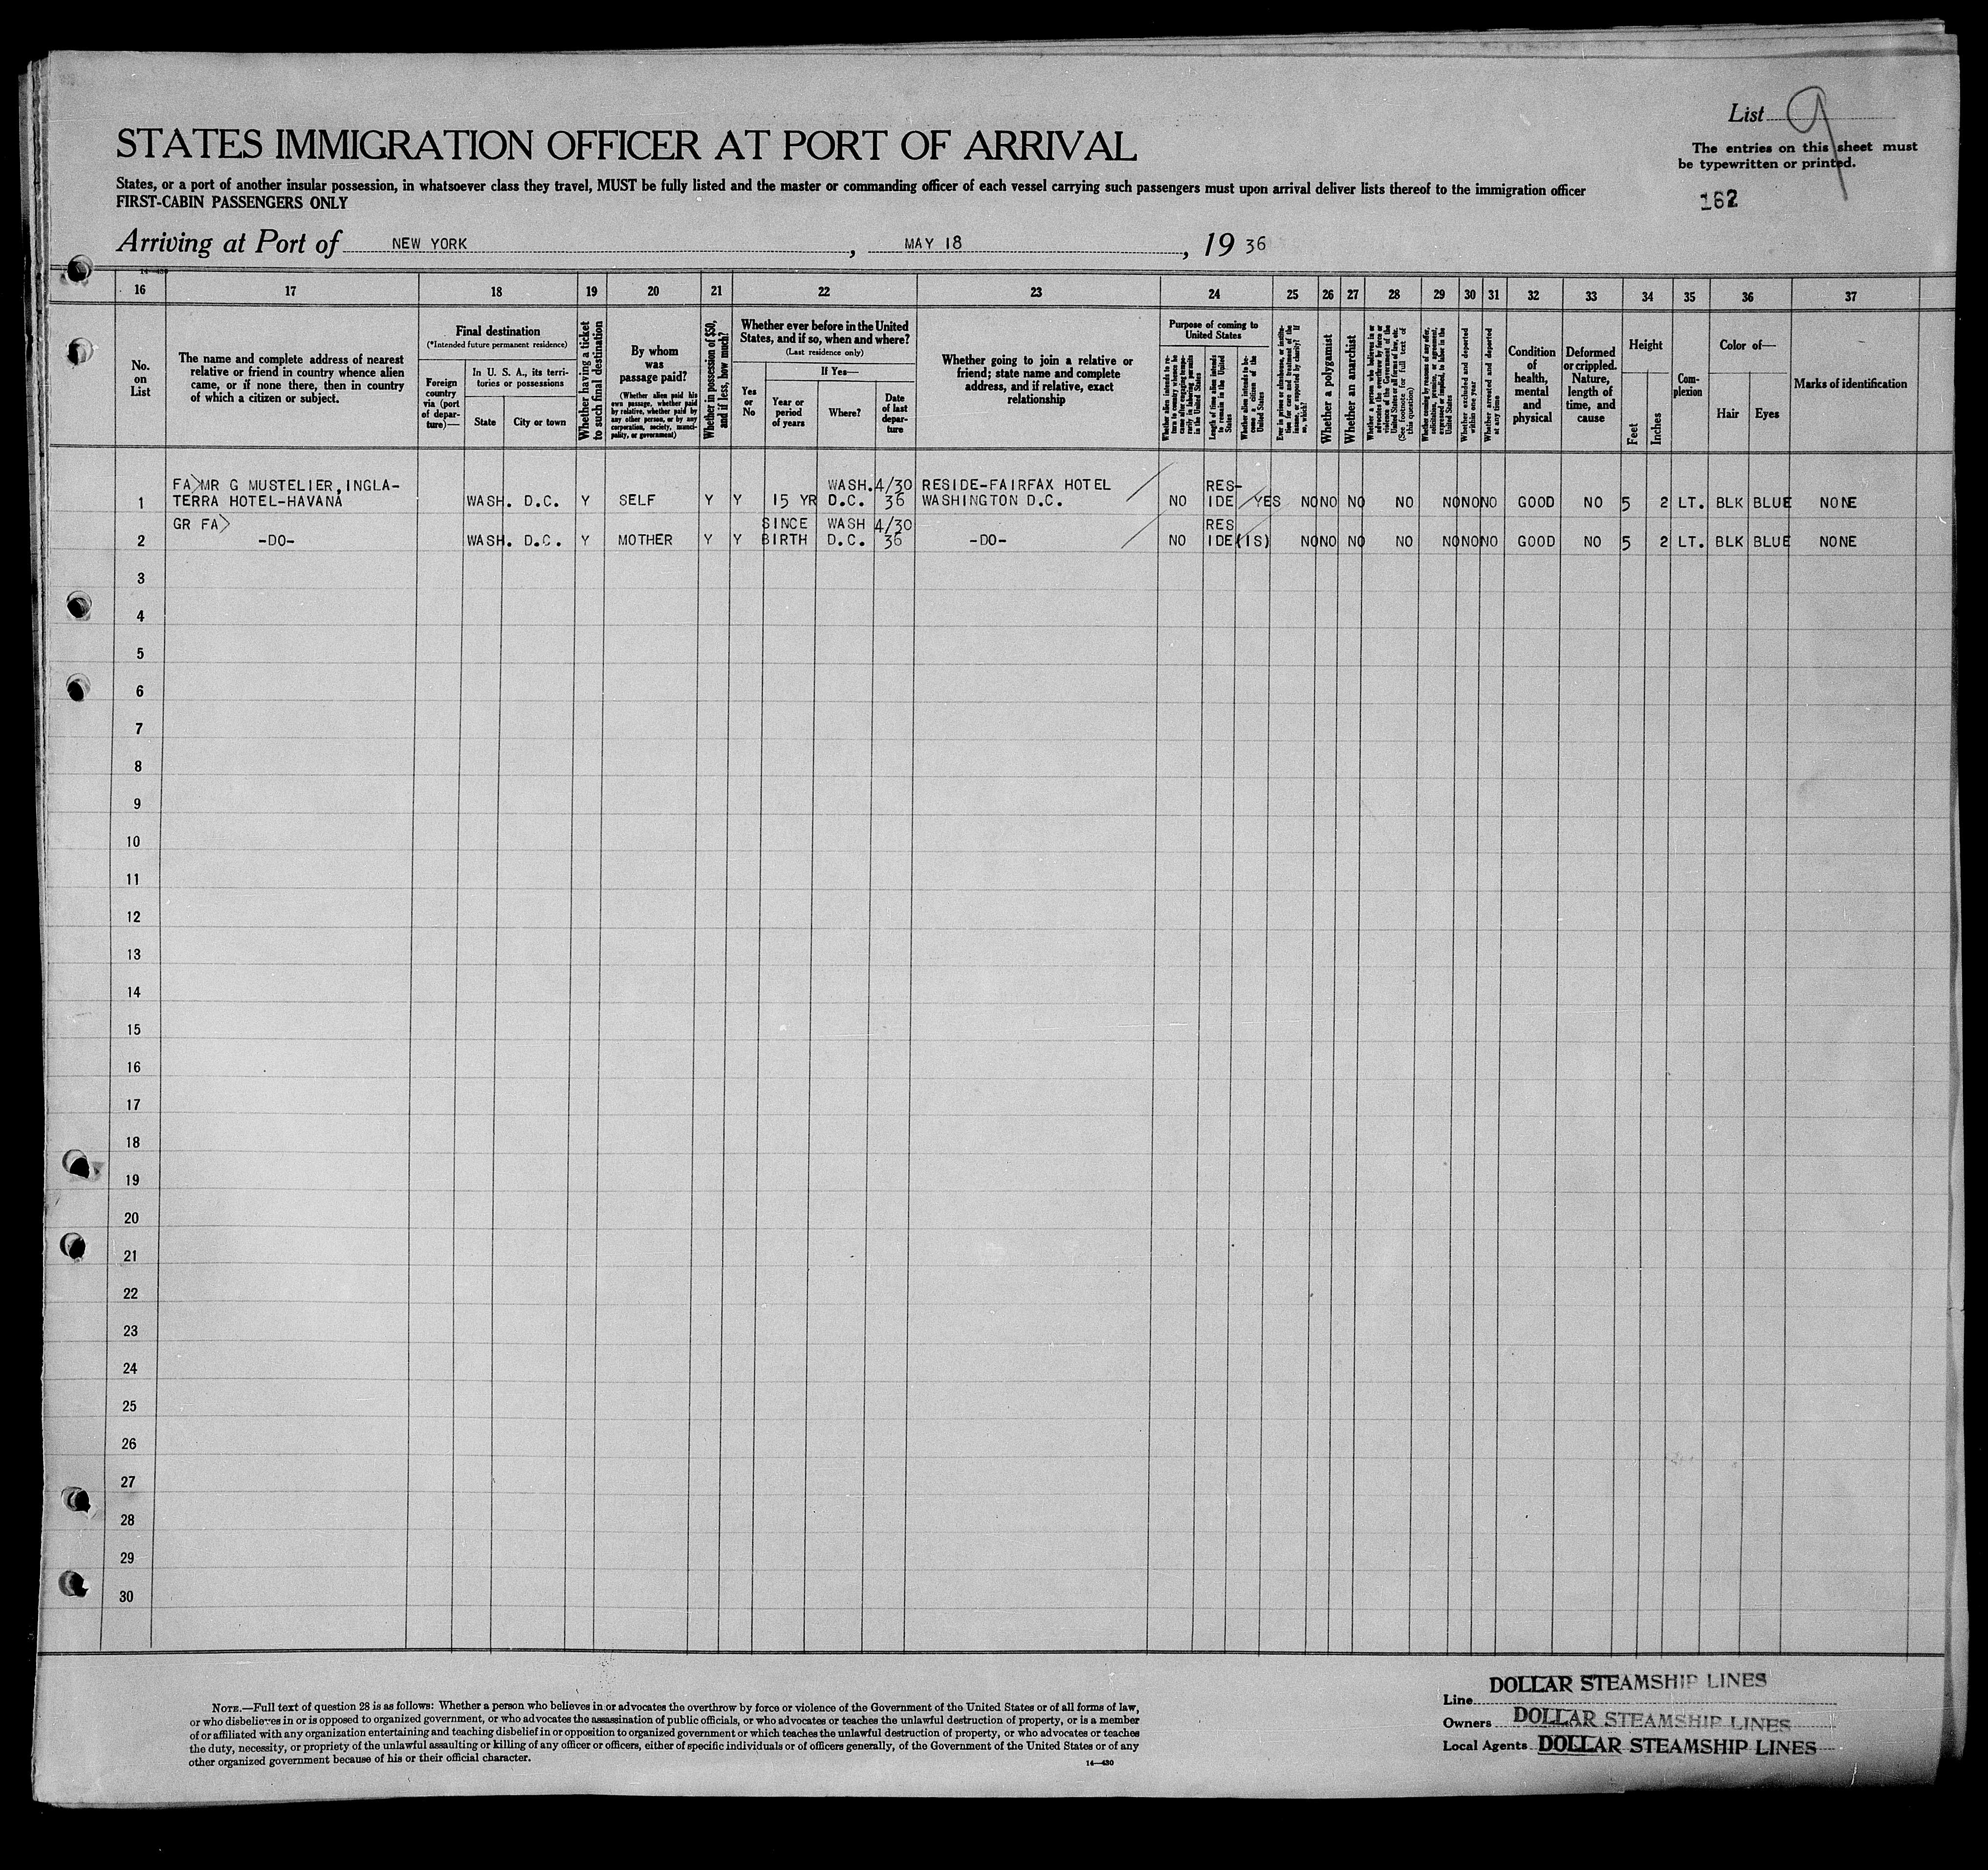 List 9
STATES IMMIGRATION OFFICER AT PORT OF ARRIVAL
The entries on this sheet must
be typewritten or printed.
States, or a port of another insular possession, in whatsoever class they travel, MUST be fully listed and the master or commanding officer of each vessel carrying such passengers must upon arrival deliver lists thereof to the immigration officer
FIRST-CABIN PASSENGERS ONLY
162
Arriving at Port of NEW YORK, MAY 18, 19 36
14-430
16 17 18 19 20 21 22 23 24 25 26 27 28 29 30 31 32 33 34 35 36 37
No.
on
List
The name and complete address of nearest
relative or friend in country whence alien
came, or if none there, then in country
of which a citizen or subject.
Final destination
(*Intended future permanent residence)
Foreign
country
via (port
of depar-
ture)—
In U. S. A., its terri-
tories or possessions
State
City or town
Whether having a ticket
to such final destination
By whom
was
passage paid?
(Whether alien paid his
own passage, whether paid
by relative, whether paid by
any other person, or by any
corporation, society, munici-
pality, or government)
Whether in possession of $50,
and if less, how much?
Whether ever before in the United
States, and if so, when and where?
(Last residence only)
Yes
or
No
If Yes—
Year or
period
of years
Where?
Date
of last
depar-
ture
Whether going to join a relative or
friend; state name and complete
address, and if relative, exact
relationship
Purpose of coming to
United States
Whether alien intends to re-
turn to country whence he
came after engaging tempo-
rarily in laboring pursuits
in the United States
Length of time alien intends
to remain in the United
States
Whether alien intends to be-
come a citizen of the
United States
Ever in prison or almshouse, or institu-
tion for care and treatment of the
insane, or supported by charity? If
so, which?
Whether a polygamist
Whether an anarchist
Whether a person who believes in or
advocates the overthrow by force or
violence of the Government of the
United States or all forms of law, etc.
(See footnote for full text of
this question)
Whether coming by reasons of any offer,
solicitation, promise, or agreement,
expressed or implied, to labor in the
United States
Whether excluded and deported
within one year
Whether arrested and deported
at any time
Condition
of
health,
mental
and
physical
Deformed
or crippled.
Nature,
length of
time, and
cause
Height
Feet
Inches
Com-
plexion
Color of—
Hair
Eyes
Marks of identification
FA>MR G MUSTELIER, INGLA- WASH. 4/30 RESIDE-FAIRFAX HOTEL RES-
1 TERRA HOTEL-HAVANA WASH. D.C. Y SELF Y Y 15 YR D.C. 36 WASHINGTON D.C. NO IDE YES NO NO NO NO NO NO NO GOOD NO 5 2 LT. BLK BLUE NONE
GR FA> SINCE WASH 4/30 RES
2 -DO- WASH. D.C. Y MOTHER Y Y BIRTH D.C. 36 -DO- NO IDE (IS) NO NO NO NO NO NO NO GOOD NO 5 2 LT. BLK BLUE NONE
3
4
5
6
7
8
9
10
11
12
13
14
15
16
17
18
19
20
21
22
23
24
25
26
27
28
29
30
NOTE.—Full text of question 28 is as follows: Whether a person who believes in or advocates the overthrow by force or violence of the Government of the United States or of all forms of law,
or who disbelieves in or is opposed to organized government, or who advocates the assassination of public officials, or who advocates or teaches the unlawful destruction of property, or is a member
of or affiliated with any organization entertaining and teaching disbelief in or opposition to organized government or which teaches the unlawful destruction of property, or who advocates or teaches
the duty, necessity, or propriety of the unlawful assaulting or killing of any officer or officers, either of specific individuals or of officers generally, of the Government of the United States or of any
other organized government because of his or their official character.
14-430
Line DOLLAR STEAMSHIP LINES
Owners DOLLAR STEAMSHIP LINES
Local Agents DOLLAR STEAMSHIP LINES